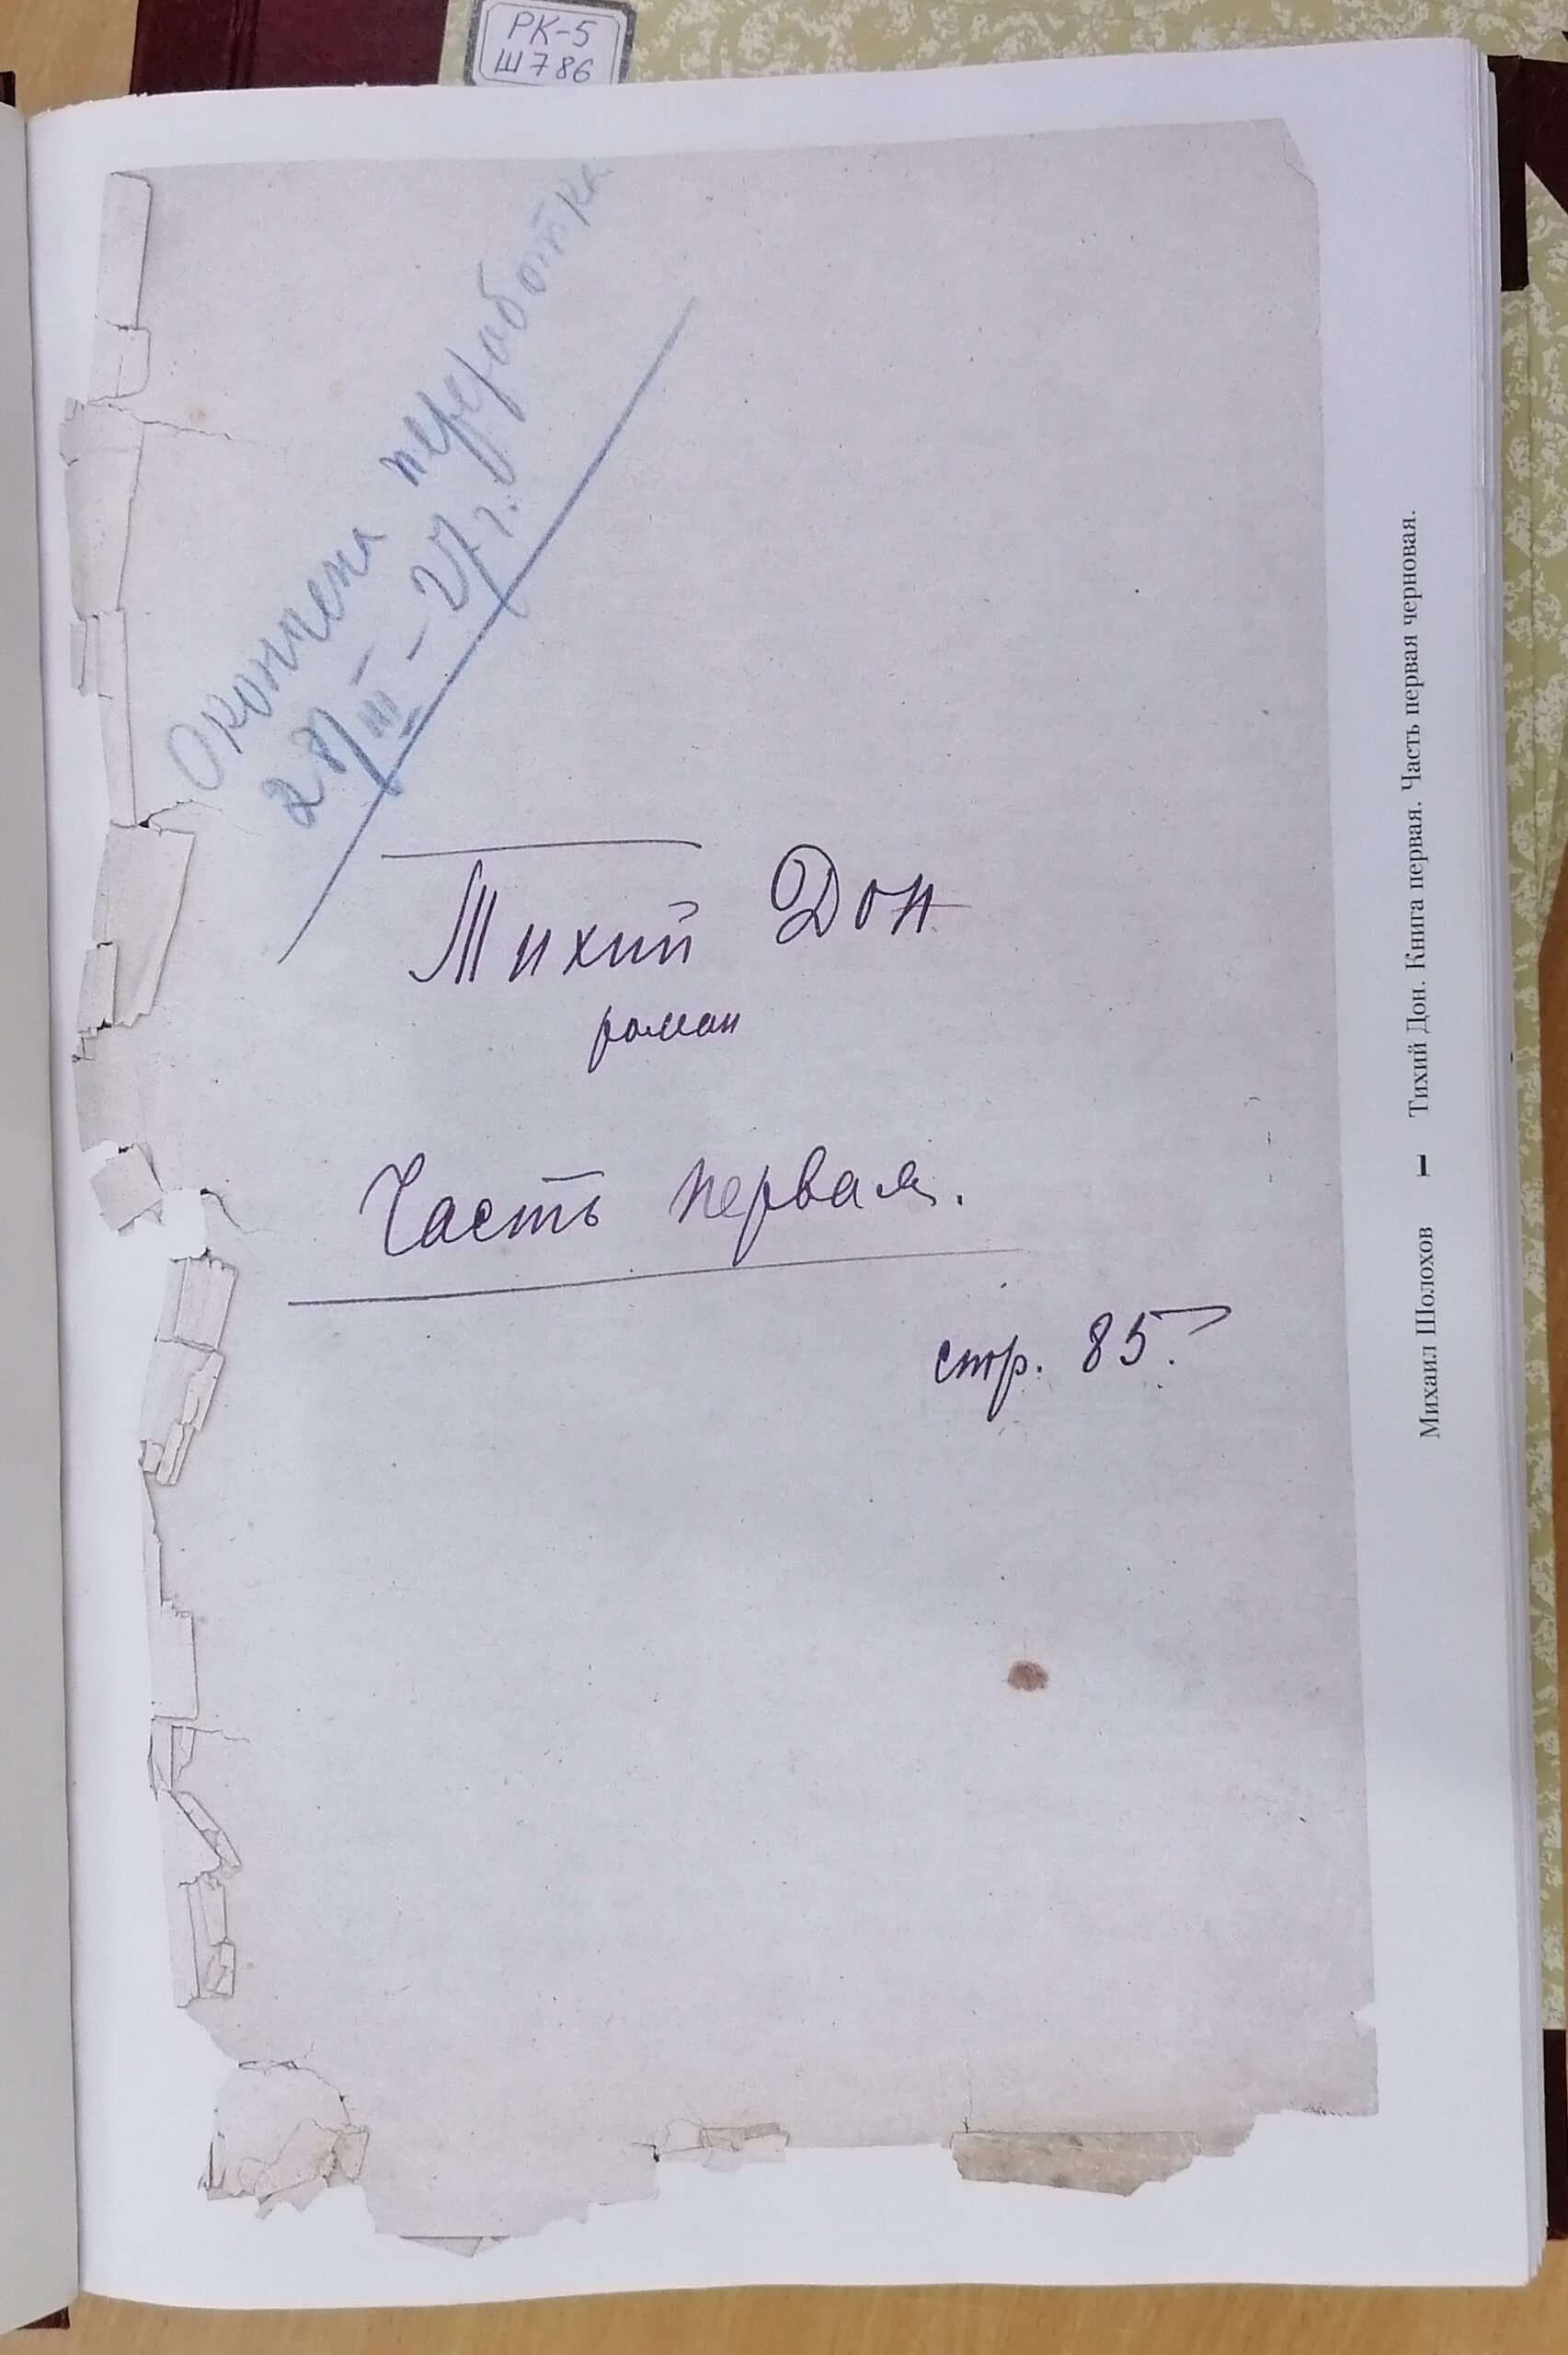 РК-5
Ш786
Окончена переработка
28/III – 27 г.
Тихий Дон
роман
Часть первая.
стр. 85.
Михаил Шолохов 1 Тихий Дон. Книга первая. Часть первая черновая.